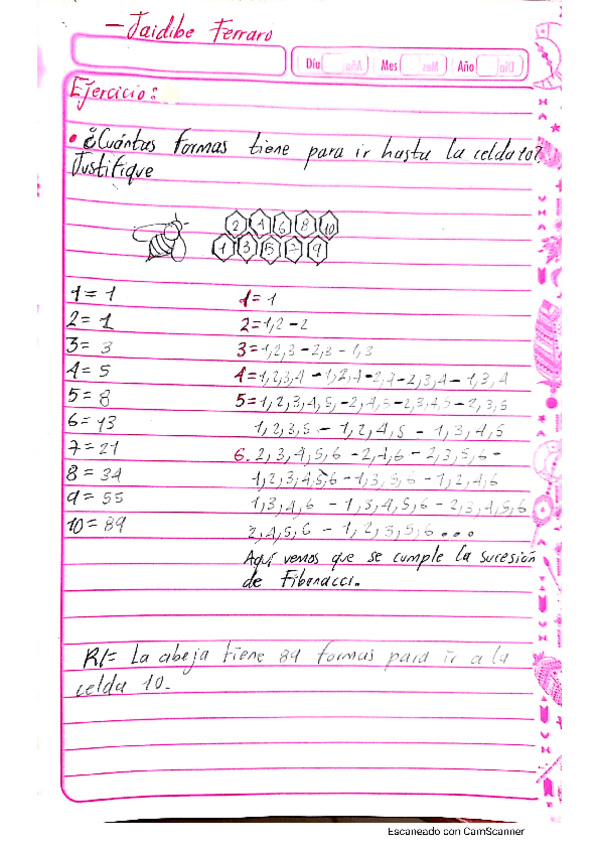 - Jaidibe Ferraro
Día Mes Año
Ejercicio:
• ¿Cuántas formas tiene para ir hasta la celda 10?
Justifique
2 4 6 8 10
1 3 5 7 9
1= 1
2= 1
3= 3
4= 5
5= 8
6= 13
7= 21
8= 34
9= 55
10= 89
1= 1
2= 1,2 - 2
3= 1,2,3 - 2,3 - 1,3
4= 1,2,3,4 - 1,2,4 - 2,4 - 2,3,4 - 1,3,4
5= 1,2,3,4,5, - 2,4,5 - 2,3,4,5 - 2,3,5
1,2,3,5 - 1,2,4,5 - 1,3,4,5
6. 2,3,4,5,6 - 2,4,6 - 2,3,5,6 -
1,2,3,4,5,6 - 1,3,5,6 - 1,2,4,6
1,3,4,6 - 1,3,4,5,6 - 2,3,4,5,6
2,4,5,6 - 1,2,3,5,6...
Aquí vemos que se cumple la sucesión
de Fibonacci.
R/= La abeja tiene 89 formas para ir a la
celda 10.
Escaneado con CamScanner